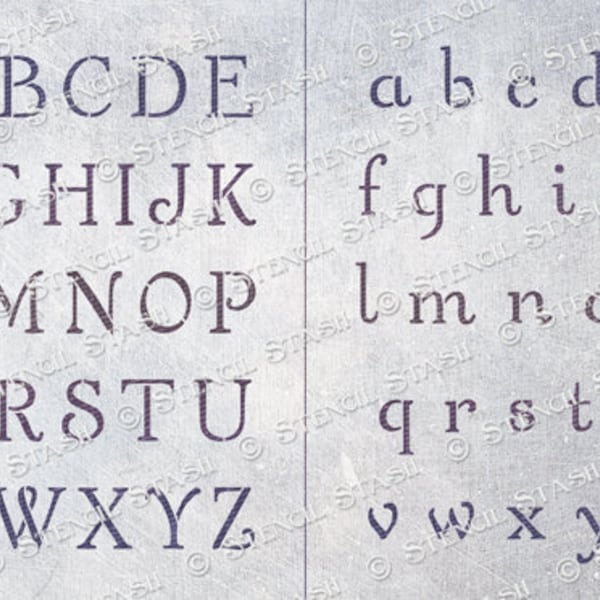 BCDE
GHIJK
MNOP
RSTU
WXYZ
abcd
fghi
lmno
qrst
vwxy
© STENCIL STASH